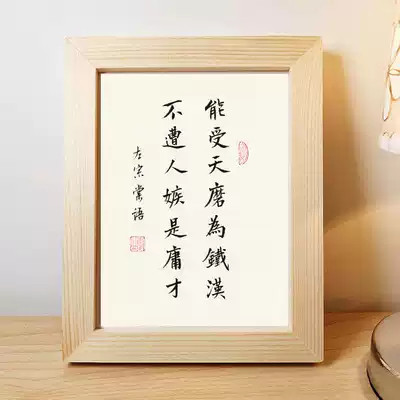 能受天磨為鐵漢
不遭人嫉是庸才
左宗棠語